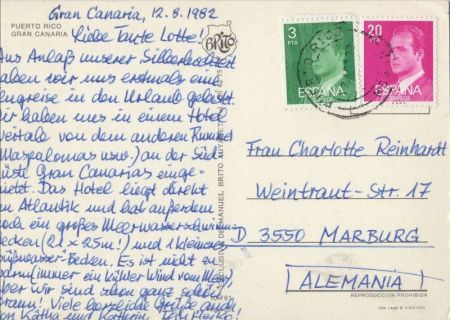 Gran Canaria, 12.8.1982
PUERTO RICO
GRAN CANARIA
Liebe Tante Lotte!
Aus Anlaß unserer Silberhochzeit
haben wir uns erstmals eine
in den Urlaub
Wir haben uns in einem Hotel
von dem anderen Rummel
Maspalomas usw.) an der Süd
küste Gran Canarias einge-
mietet. Das Hotel liegt direkt
am Atlantik und hat außerdem
noch ein großes Meerwasserschwimm
becken (21 x 25m!) und 1 kleineres
Süßwasser-Becken. Es ist nicht zu
warm (immer ein kühler Wind vom Meer)
aber wir sind schon ganz schön
braun! Viele herzliche Grüße auch
von Käthe und Kathrin,
BRITO
3
PTA
ESPAÑA
20
PTA
ESPAÑA
Frau Charlotte Reinhardt
Weintraut-Str. 17
D 3550 MARBURG
ALEMANIA
REPRODUCCION PROHIBIDA